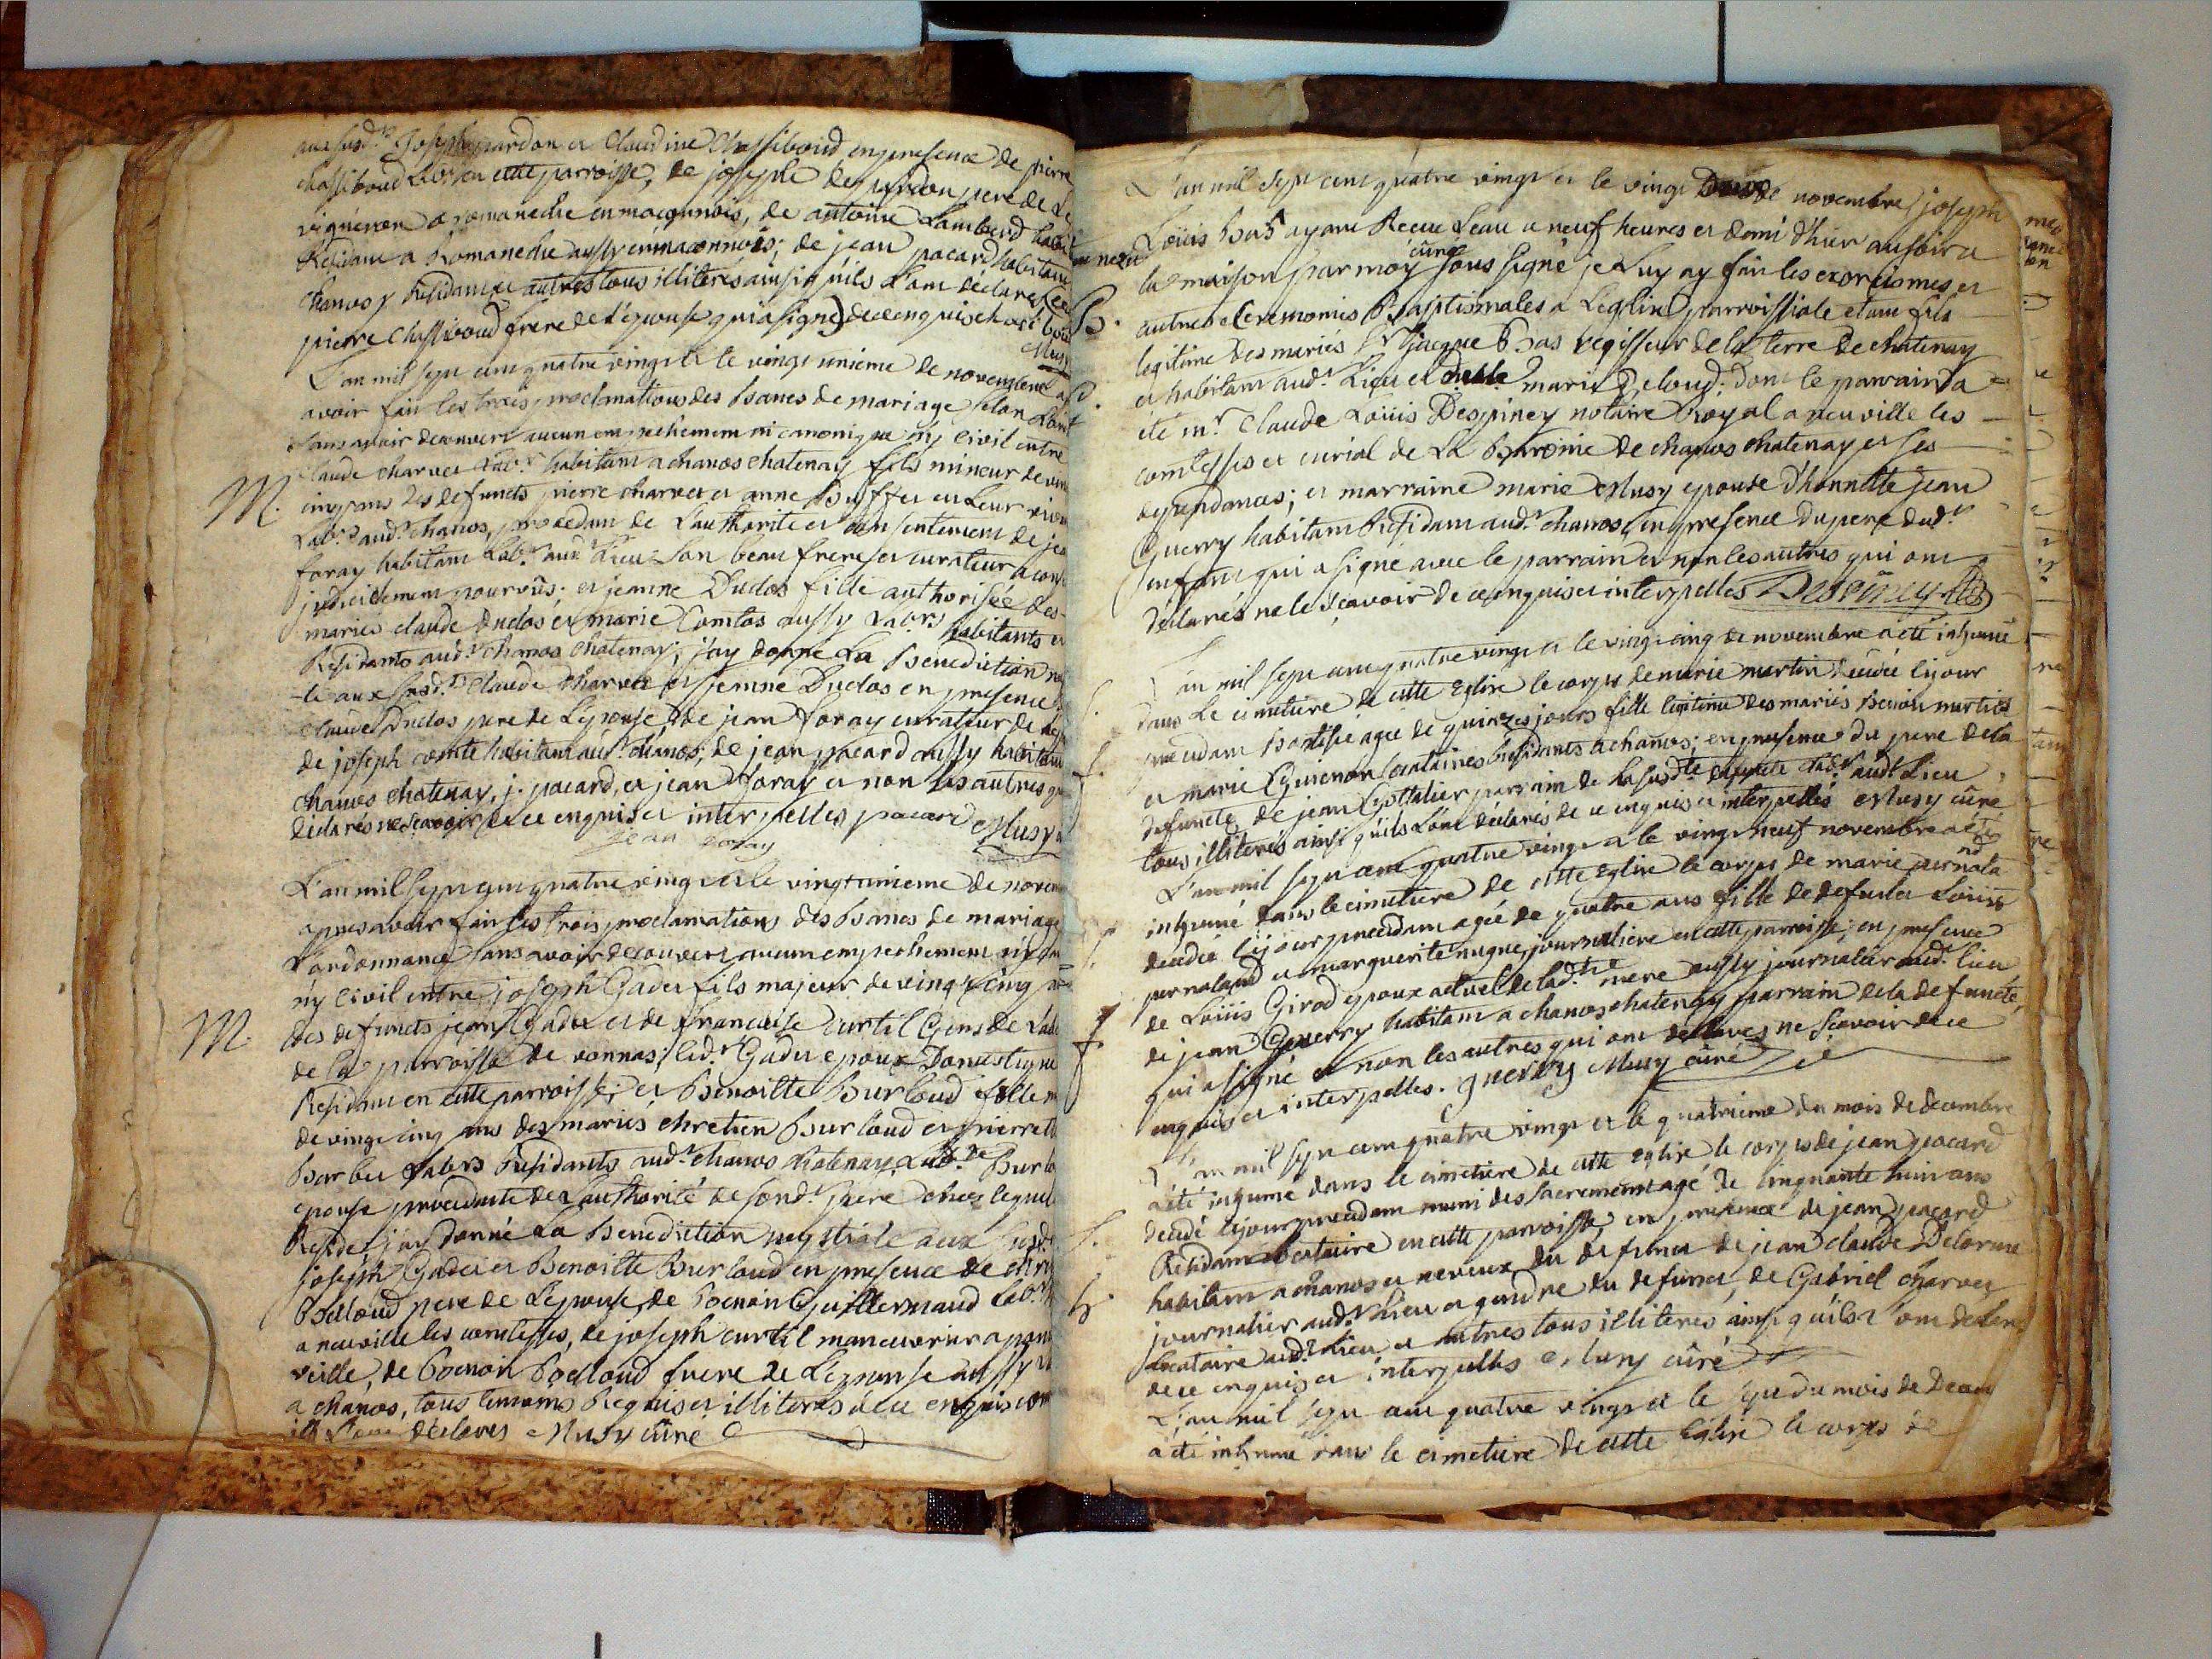 aux susd.ts Joseph pardon et Claudine Chassiboud en presence de pierre
chassiboud Lab.r en cette parroisse, de joseph pardon pere de
vigneron a romaneche en maconnois, de antoine Lambert
Residant a Romaneche aussy en maconnois; de jean pacard habitant
chanos y Residant et autres tous illiterés ainsi qu'ils L'ont déclaré
pierre Chassiboud frere de L'epouse qui a signé) de ce enquis
Musy
L'an mil sept cent quatre vingt et le vingt unieme de novembre
avoir fait les trois proclamations des Bancs de mariage selon
sans avoir decouvert aucun empechement ni canonique ny civil entre
Claude charvet Lab.r habitant a chanos chatenay fils mineur de
M.
cinq ans des defuncts pierre charvet et anne Buffet en Leur
Lab.rs aud.t chanos, procedant de L'authorite et consentement de
foray habitant Lab.r aud.t Lieu son beau frere et curateur a
judiciellement pourvûs; et jeanne Duclos fille authorisée des
mariés claude Duclos et marie Comtos aussy Lab.rs habitants et
Residants aud.t chanos chatenay, j'ay donné La Benediction
le aux susd.ts Claude charvet et jeanne Duclos en presence
claude Duclos pere de L'epouse de jean foray curateur de
de joseph comte habitant aud.t chanos; de jean pacard aussy habitant
chanos chatenay, j. pacard, et jean foray et non les autres
déclarés ne sçavoir de ce enquis et interpelles pacard Musy
jean foray
L'an mil sept cent quatre vingt et le vingt unieme de
apres avoir fait les trois proclamations des Bancs de mariage
L'ordonnance sans avoir decouvert aucun empechement ny
ny civil entre joseph Gadet fils majeur de vingt cinq
M.
des defuncts jean Gadet et de francoise Curtil Gens de
de la parroisse de vonnas; led.t Gadet epoux Domestique
Residant en cette parroisse; et Benoitte Burloud fille
de vingt cinq ans des mariés chretien Burloud et pierrette
Barbet Lab.rs Residants aud.t chanos chatenay Lad.te
epouse procedante de L'authorité de sond.t pere chez lequel
Reside, j'ay donné La Benediction nuptiale aux susd.ts
joseph Gadet et Benoitte Burloud en presence de
Belloud pere de L'epouse, de Benoit Guillermaud Lab.r
a neuville les comtesses, de joseph curtil manouvrier a
ville, de Benoit Belloud frere de L'epouse aussy
a chanos, tous temoins Requis et illiterés de ce enquis
ils L'ont déclarés Musy curé
L'an mil sept cent quatre vingt et le vingt Deux de novembre joseph
Loüis Bas ayant Receu L'eau a neuf heures et demi d'hier au soir a
la maison par moy curé sous signé je Luy ay fait les exorcismes et
B.
autres Ceremonies Baptismales a L'eglise parroissiale etant fils
legitime des mariés S.r jacque Bas regisseur de la terre de chatenay
et habitant aud.t Lieu et marie Deloud: dont le parrain a
été m.r Claude Loüis Despiney notaire Royal a neuville les
comtesses et curial de La Baronie de chanos chatenay et ses
dependances; et marraine marie Musy epouse d'honnette jean
Guerry habitant Residant aud.t chanos, en presence du pere dud.t
enfant qui a signé avec le parrain et non les autres qui ont
déclarés ne le sçavoir de ce enquis et interpelles Despiney
L'an mil sept cent quatre vingt et le vingt cinq de novembre a été inhumé
dans Le cimetiere de cette Eglise le corps de marie martin decedée le jour
precedant Baptisée agée de quinze jours fille legitime des mariés Benoit martin
et marie Guienon locataires Residants a chanos; en presence du pere de la
defuncte de jean Gottalier parrain de la susd.te defuncte Lab.r aud.t Lieu
tous illiterés ainsi qu'ils L'ont déclarés de ce enquis et interpellés Musy curé
L'an mil sept cent quatre vingt et le vingt neuf novembre a été
inhumé dans le cimetiere de cette Eglise le corps de marie pernoud
decedée le jour precedant agée de quatre ans fille de defunct Loüis
pernoud et marguerite nugue, journaliere en cette parroisse; en presence
de Loüis Girod epoux actuel de lad.te mere aussy journalier aud.t Lieu
de jean Guerry habitant a chanos chatenay parrain de la defuncte,
qui a signé et non les autres qui ont declarés ne sçavoir de ce
enquis et interpelles. guerry Musy curé
L'an mil sept cent quatre vingt et le quatrieme du mois de decembre
a été inhumé dans le cimetiere de cette Eglise le corps de jean pacard
decedé le jour precedant muni des sacrements agé de cinquante huit ans
Residant locataire en cette parroisse, en presence de jean pacard
habitant a chanos et neveux du defunct de jean claude Delorme
journalier aud.t Lieu et gendre du defunct, de Gabriel charvet
Locataire aud.t Lieu et autres tous illiterés ainsi qu'ils L'ont
de ce enquis et interpellés Musy curé
L'an mil sept cent quatre vingt et le sept du mois de
a été inhumé dans le cimetiere de cette Eglise le corps de